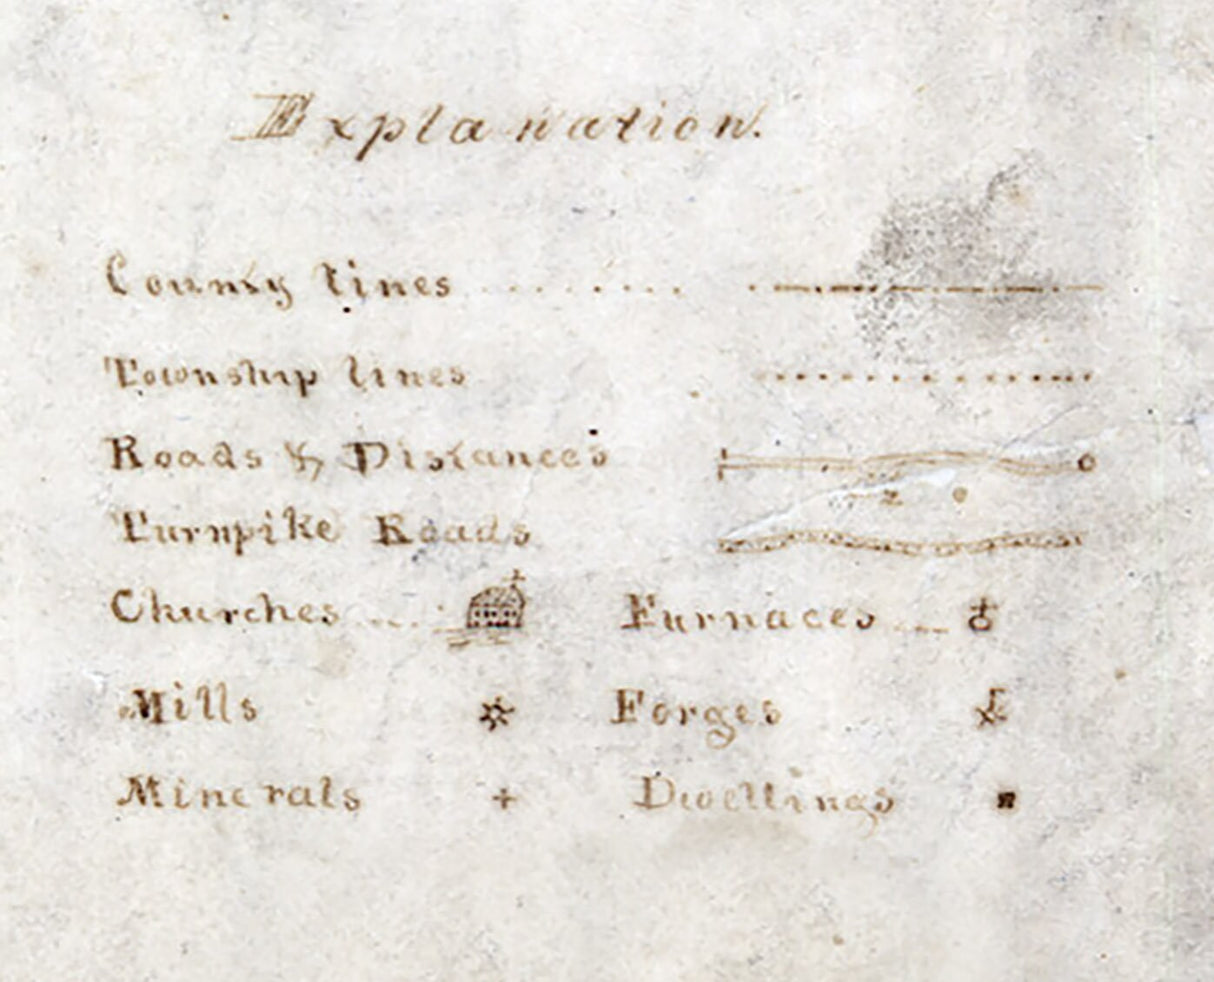 Explanation.
County lines
Township lines
Roads & Distances
2
Turnpike Roads
Churches Furnaces
Mills Forges
Minerals Dwellings